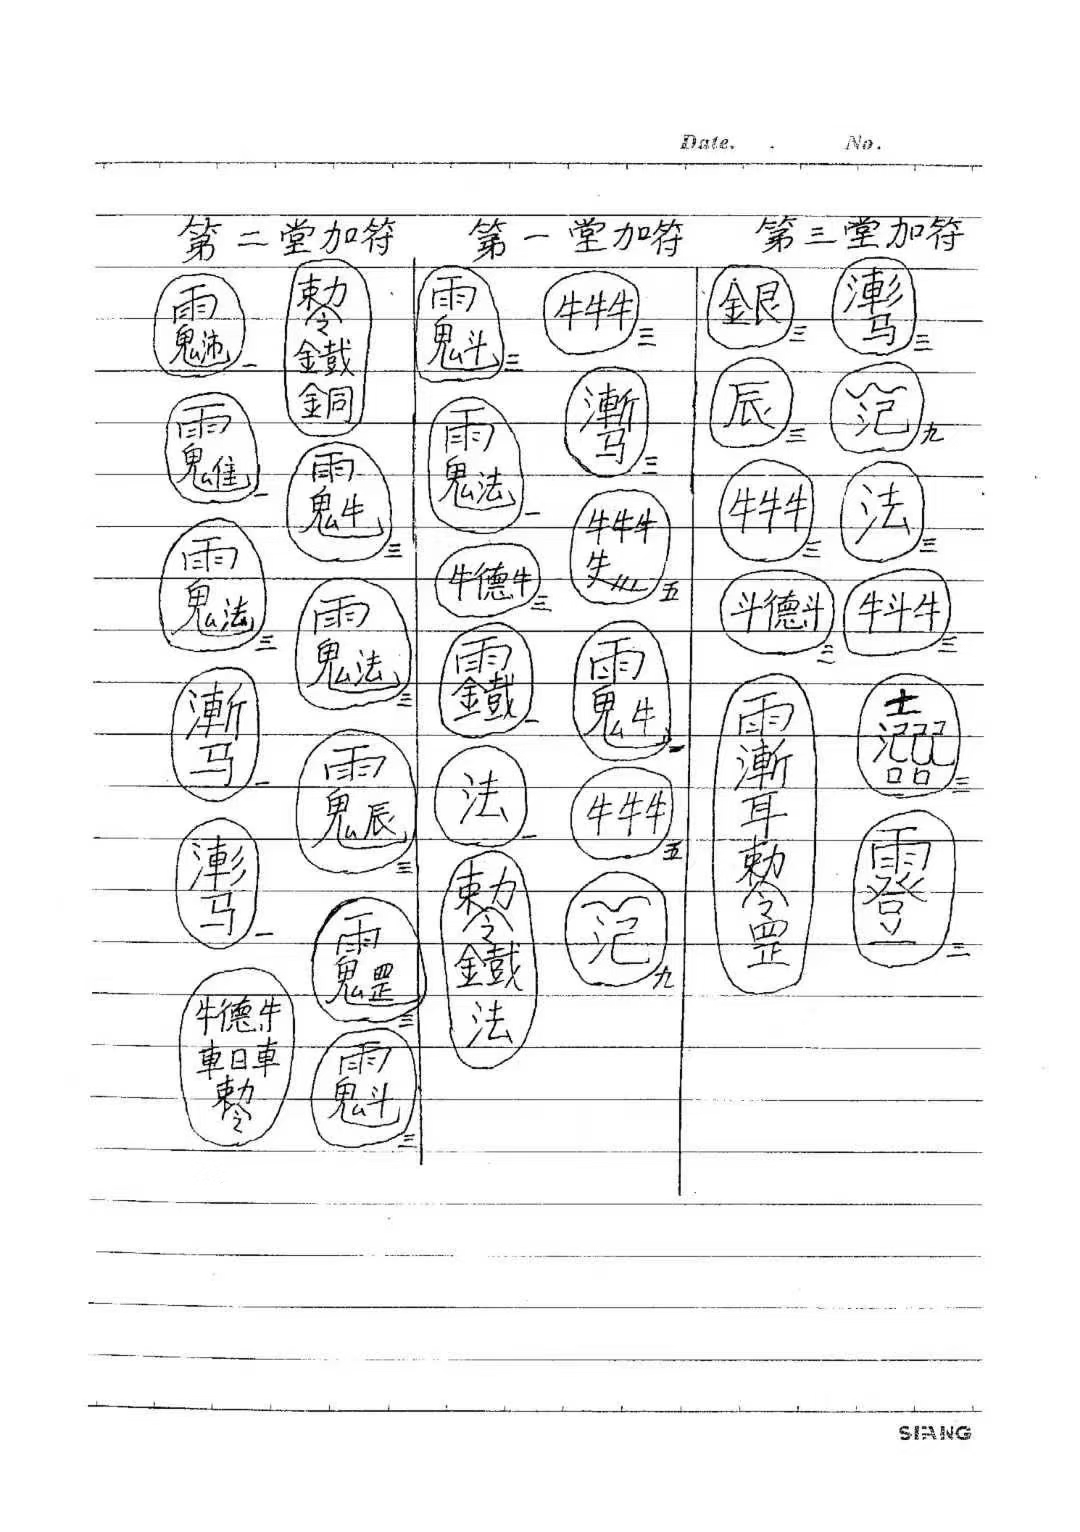 Date. . No.
第二堂加符 第一堂加符 第三堂加符
雨
鬼沛 一
雨
鬼隹 一
雨
鬼法 三
漸
马 一
马 一
牛德牛
車日車
勅
令
勅
令
鐵
銅
雨
鬼牛 三
雨
鬼法 三
雨
鬼辰 三
雨
鬼罡 三
雨
鬼斗 三
雨
鬼斗 三
雨
鬼法 一
牛德牛 三
雨
鐵 一
法 一
勅
令
鐵
法
牛牛牛 三
漸
马 三
牛牛牛
五
雨
鬼牛
牛牛牛 五
九
銀 三
辰 三
牛牛牛 三
斗德斗 三
雨
漸
耳
勅
令
罡
马 三
九
法 三
牛斗牛 三
三
雨
登 三
SIANG